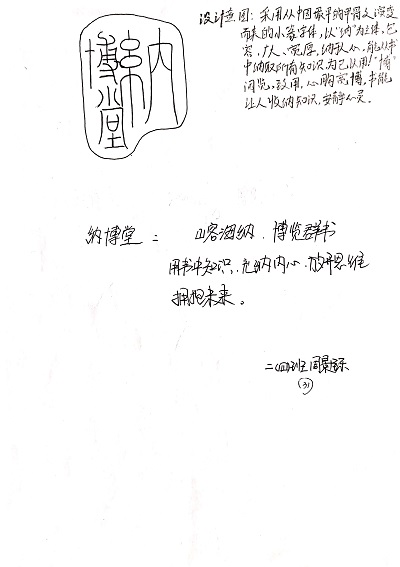 納
博堂
设计意图：采用从中国最早的甲骨文演变
而来的小篆字体，以“纳”为主体，包
容，广人、宽厚，纳致人心，能从书
中纳取所有知识为己从用！“博”
阅览，致用，心胸宽博，书能
让人收纳知识，安静人员。
纳博堂：山容海纳、博览群书
用书中知识，充纳内心，放开思维
拥抱未来。
二四班
31